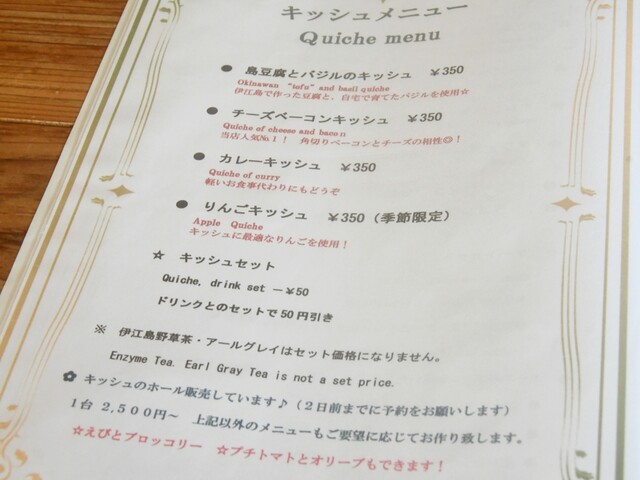 キッシュメニュー
Quiche menu
● 島豆腐とバジルのキッシュ ￥350
Okinawan "tofu" and basil quiche
伊江島で作った豆腐と、自宅で育てたバジルを使用☆
● チーズベーコンキッシュ ￥350
Quiche of cheese and bacon
当店人気№１！ 角切りベーコンとチーズの相性◎！
● カレーキッシュ ￥350
Quiche of curry
軽いお食事代わりにもどうぞ
● りんごキッシュ ￥350（季節限定）
Apple Quiche
キッシュに最適なりんごを使用！
☆ キッシュセット
Quiche, drink set －￥50
ドリンクとのセットで50円引き
※ 伊江島野草茶・アールグレイはセット価格になりません。
Enzyme Tea. Earl Gray Tea is not a set price.
✿ キッシュのホール販売しています♪（２日前までに予約をお願いします）
１台 2,500円～ 上記以外のメニューもご要望に応じてお作り致します。
☆えびとブロッコリー ☆プチトマトとオリーブもできます！